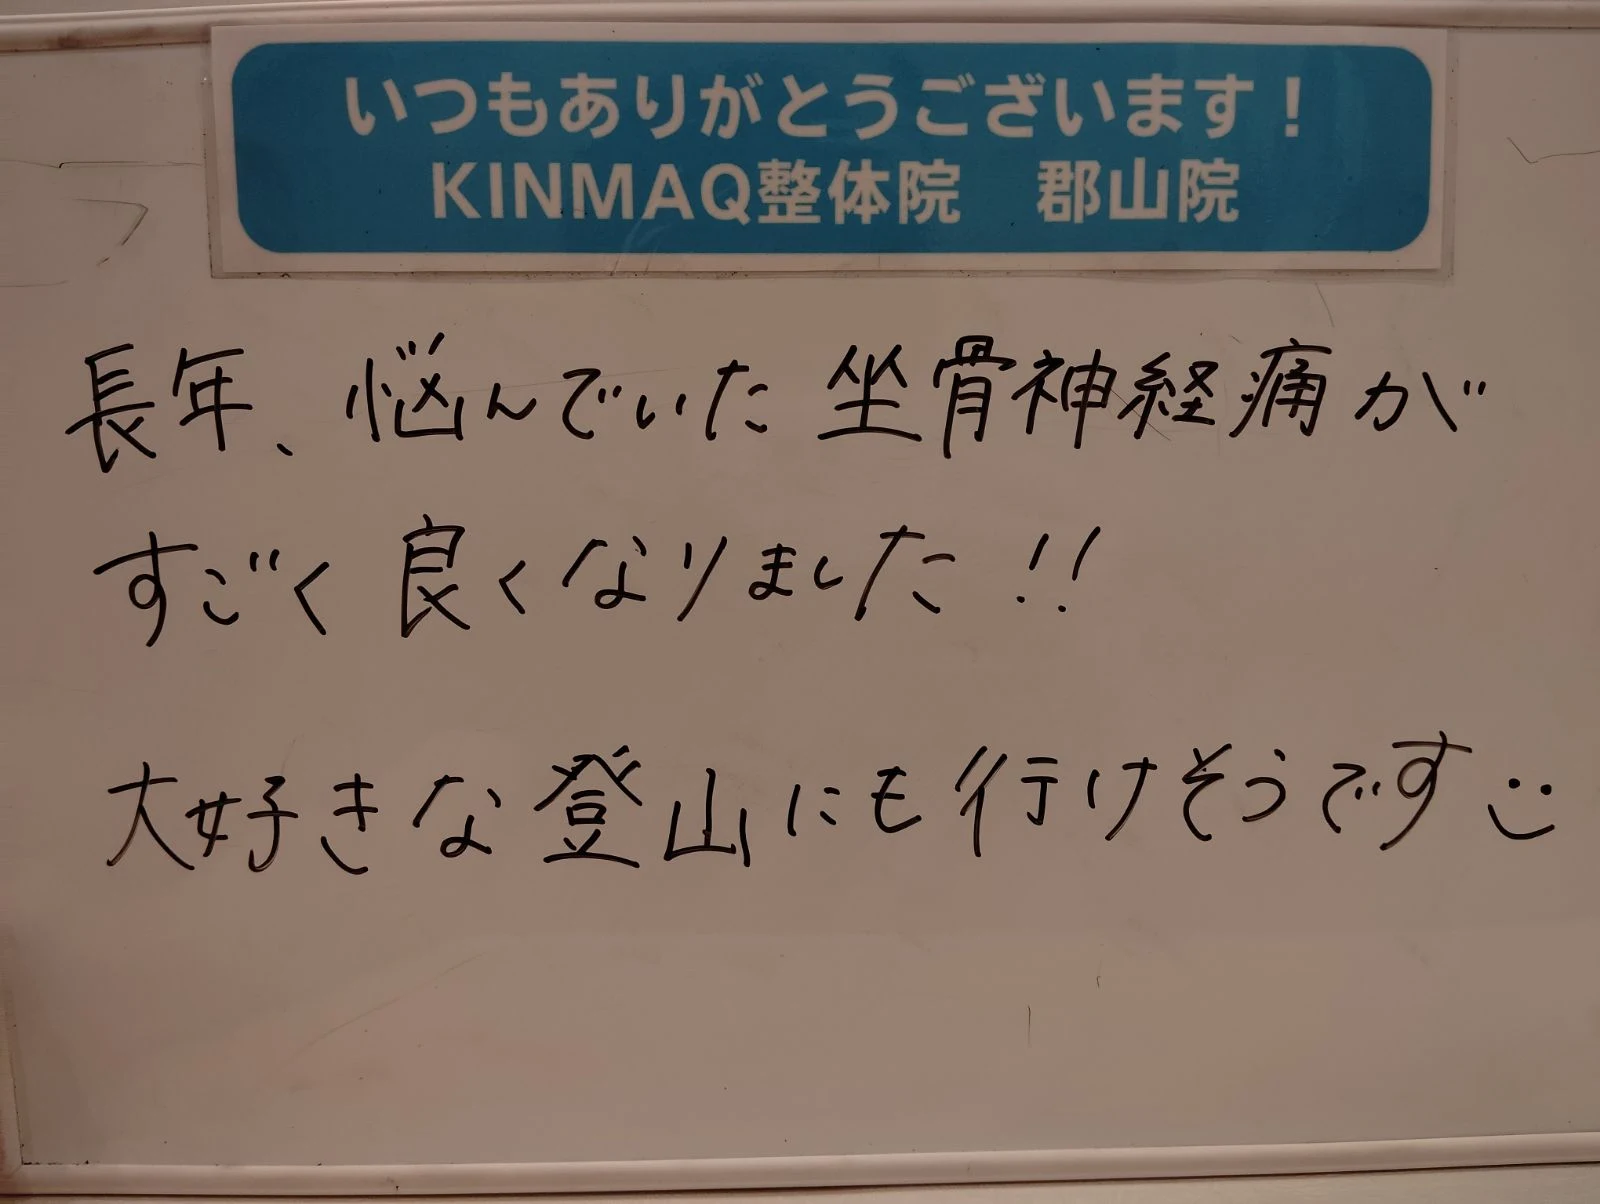 いつもありがとうございます！
KINMAQ整体院　郡山院
長年、悩んでいた坐骨神経痛が
すごく良くなりました!!
大好きな登山にも行けそうです